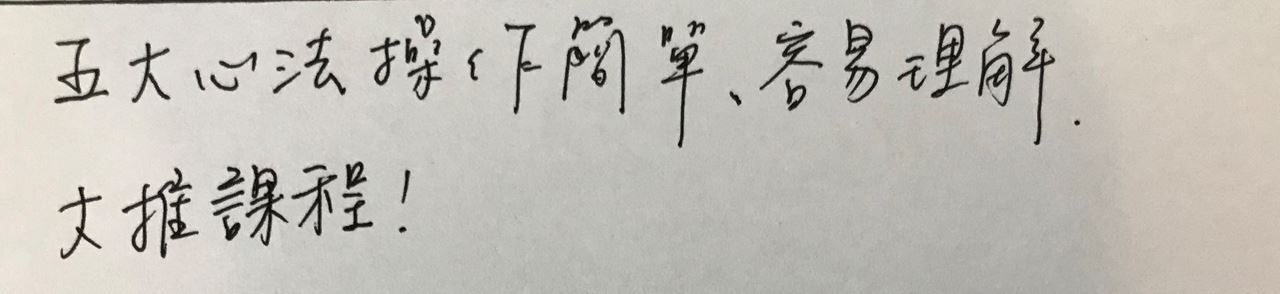 五大心法操作簡單、容易理解.
大推課程!